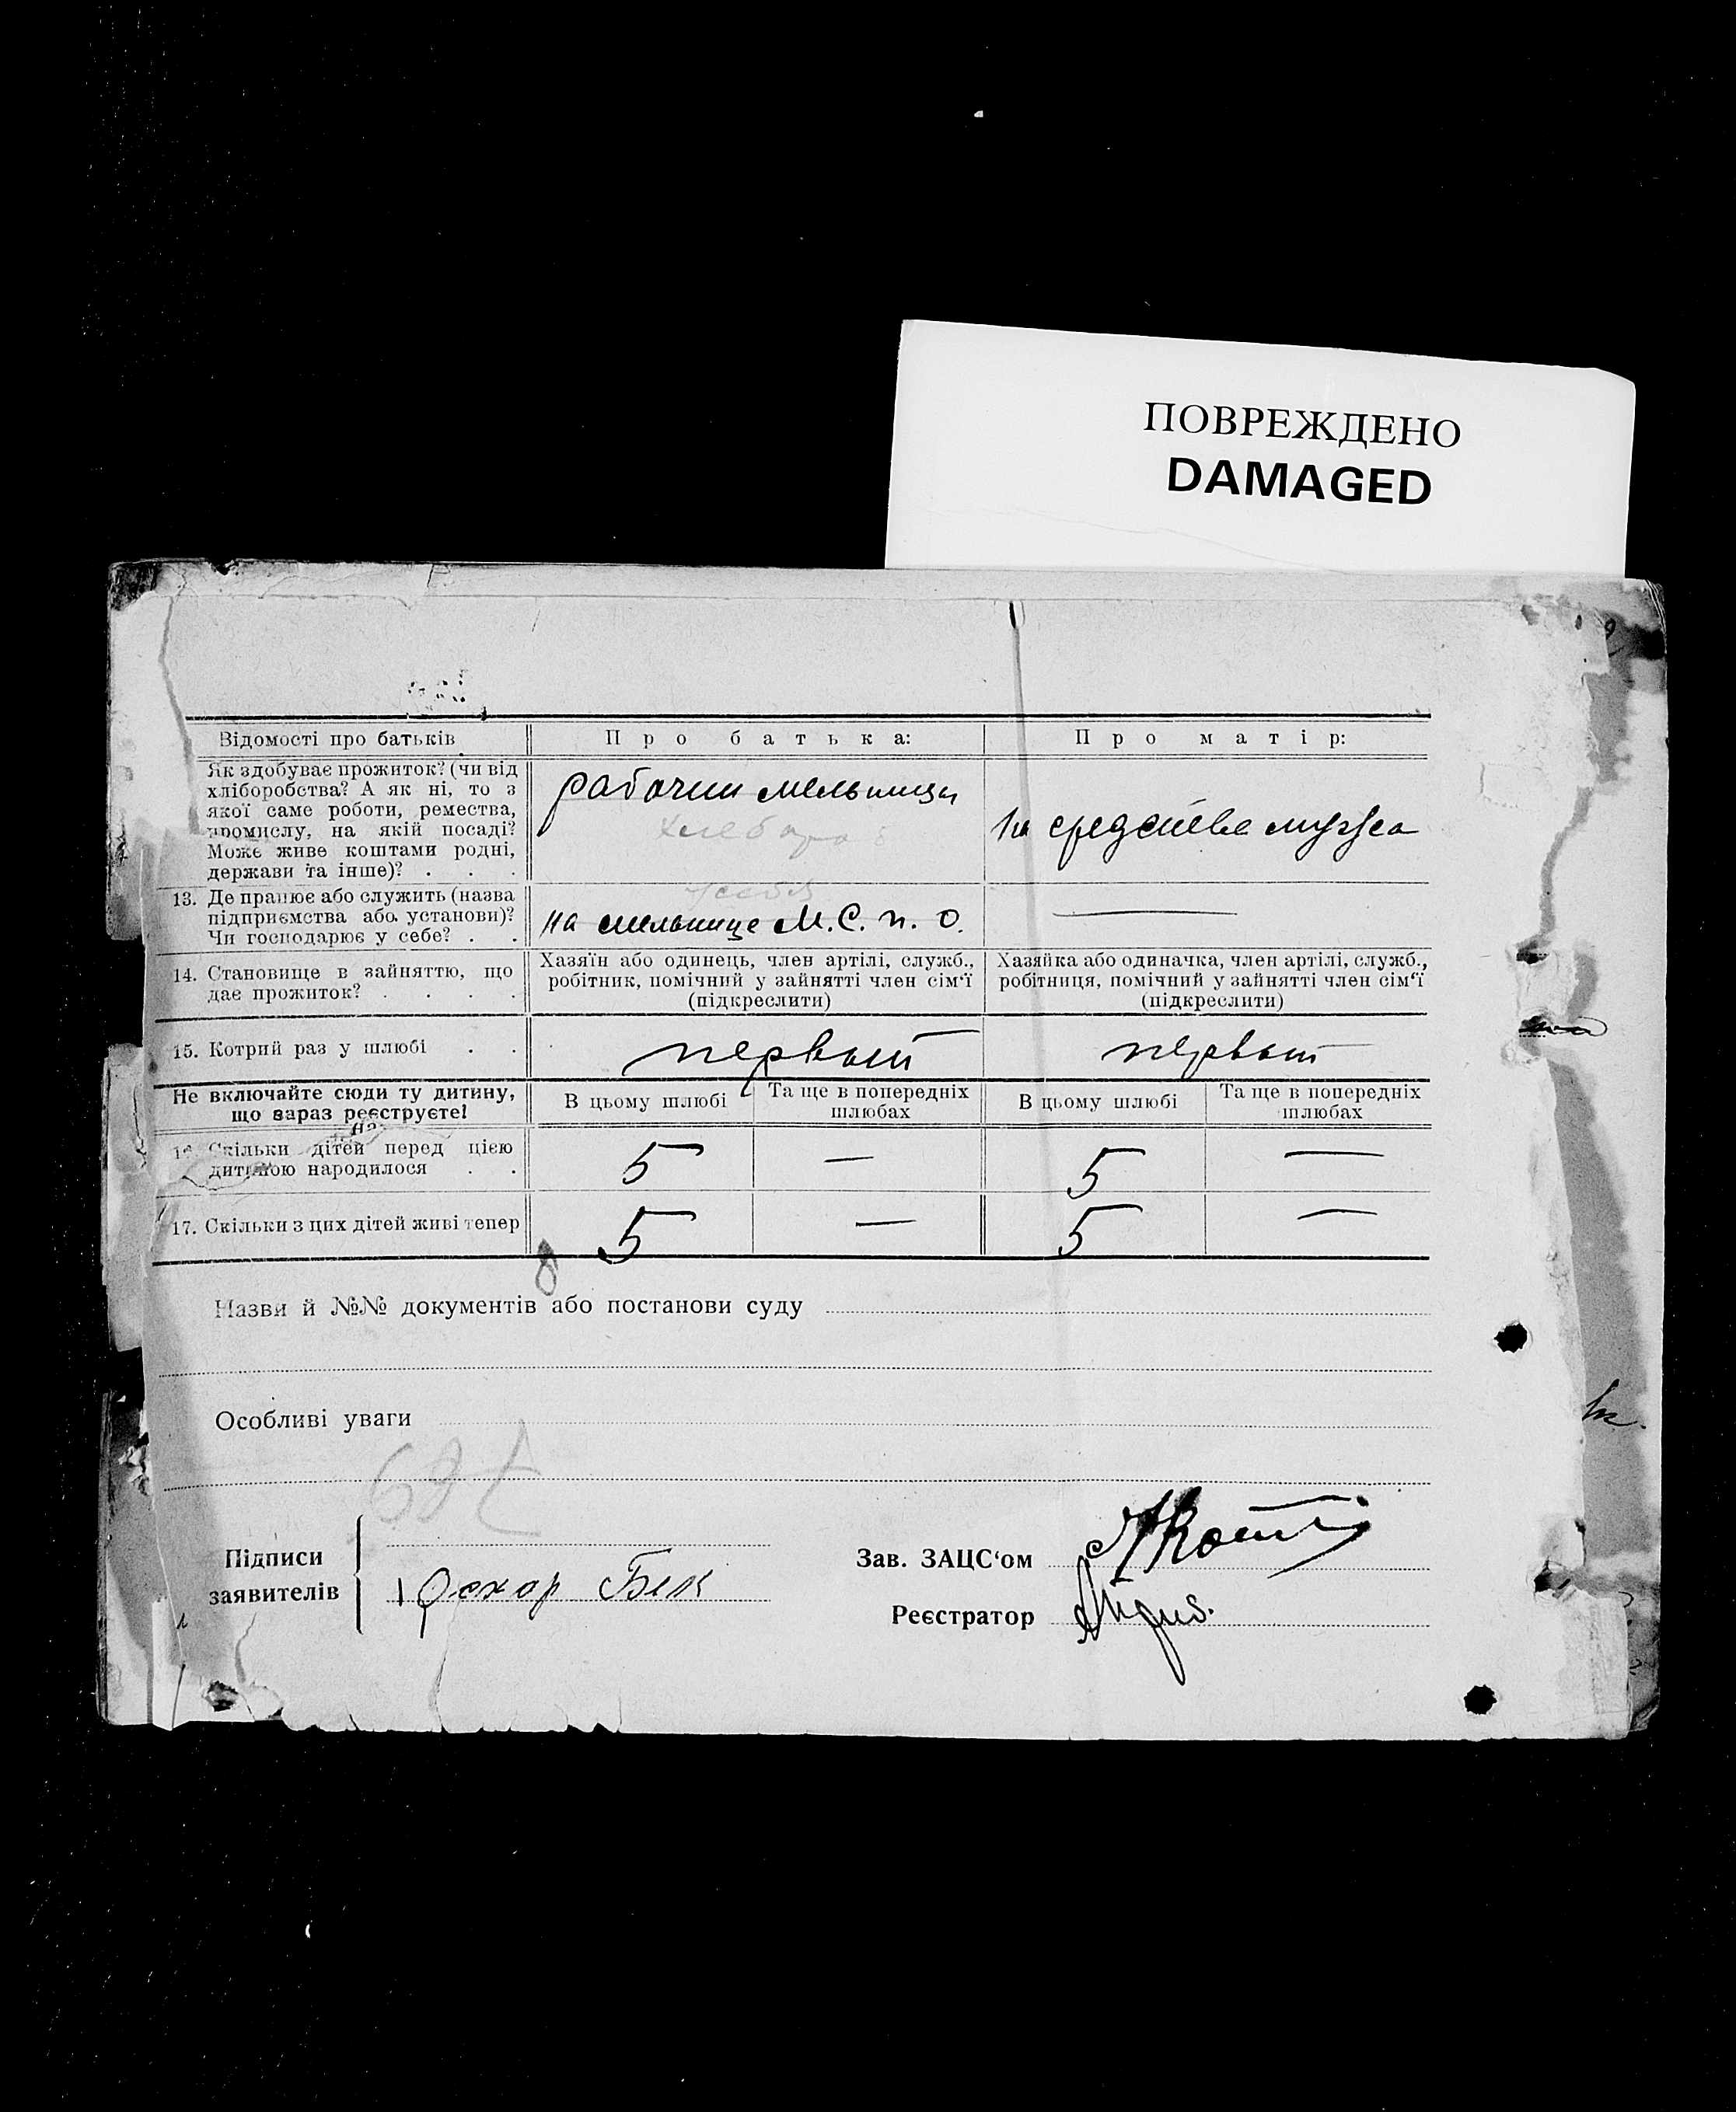 ПОВРЕЖДЕНО
DAMAGED
Відомості про батьків
Про батька:
Про матір:
Як здобуває прожиток? (чи від
хліборобства? А як ні, то з
якої саме роботи, ремества,
промислу, на якій посаді?
Може живе коштами родні,
держави та інше)? . . .
рабочий мельницы
на средства мужа
13. Де працює або служить (назва
підприємства або установи)?
Чи господарює у себе? . .
на мельнице М.С.П.О.
—
14. Становище в зайняттю, що
дає прожиток? . . . .
Хазяїн або одинець, член артілі, служб.,
робітник, помічний у зайнятті член сім‘ї
(підкреслити)
Хазяйка або одиначка, член артілі, служб.,
робітниця, помічний у зайнятті член сім‘ї
(підкреслити)
15. Котрий раз у шлюбі . .
первый
первый
Не включайте сюди ту дитину,
що зараз реєструєте!
В цьому шлюбі
Та ще в попередніх
шлюбах
В цьому шлюбі
Та ще в попередніх
шлюбах
16. Скільки дітей перед цією
дитиною народилося . .
5 — 5 —
17. Скільки з цих дітей живі тепер
5 — 5 —
Назви й №№ документів або постанови суду
Особливі уваги
Підписи
заявителів
Оскар Бек
Зав. ЗАЦС‘ом
Реєстратор